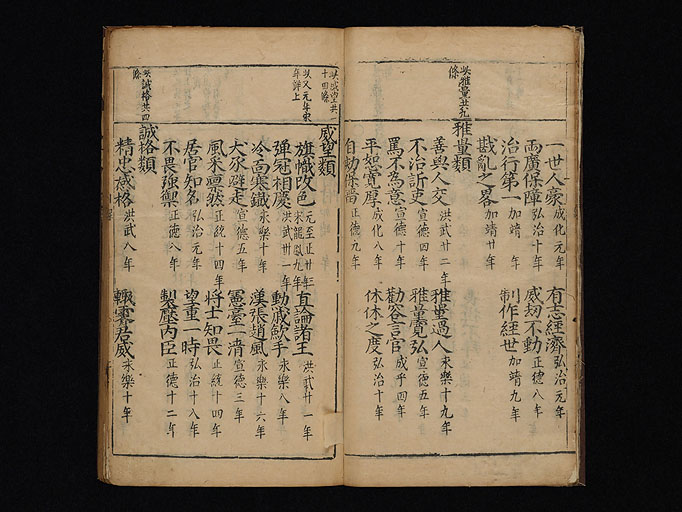 一世人豪 成化元年 有志經濟 弘治元年
兩廣保障 弘治十年 威刼不動 正德八年
治行第一 加靖 年 制作經世 加靖九年
戡亂之畧 加靖廿年
共雅量共九條
雅量類
善與人交 洪武廿二年 雅量過人 永樂十九年
不治訢吏 宣德四年 雅量寛弘 宣德五年
罵不為意 宣德十年 勸容言官 成乎四年
平如寛厚 成化八年 休休之度 弘治十年
自劾保 正德九年
威望類
旗幟改色 元至正廿年 直論諸王 洪武廿一年
彈冠相慶 洪武廿一年 動戚歛手 永樂八年
冷面寒鐵 永樂十年 漢張趙風 永樂十六年
大豕避走 宣德五年 憲臺一清 宣德三年
風采凛然 正統十四年 將士知畏 正統十四年
居官知名 弘治元年 望重一時 弘治十八年
不畏強禦 正德八年 製壓內臣 正德十二年
共誠格共四條
誠格類
精忠感格 洪武八年 輙霽君威 永樂十年